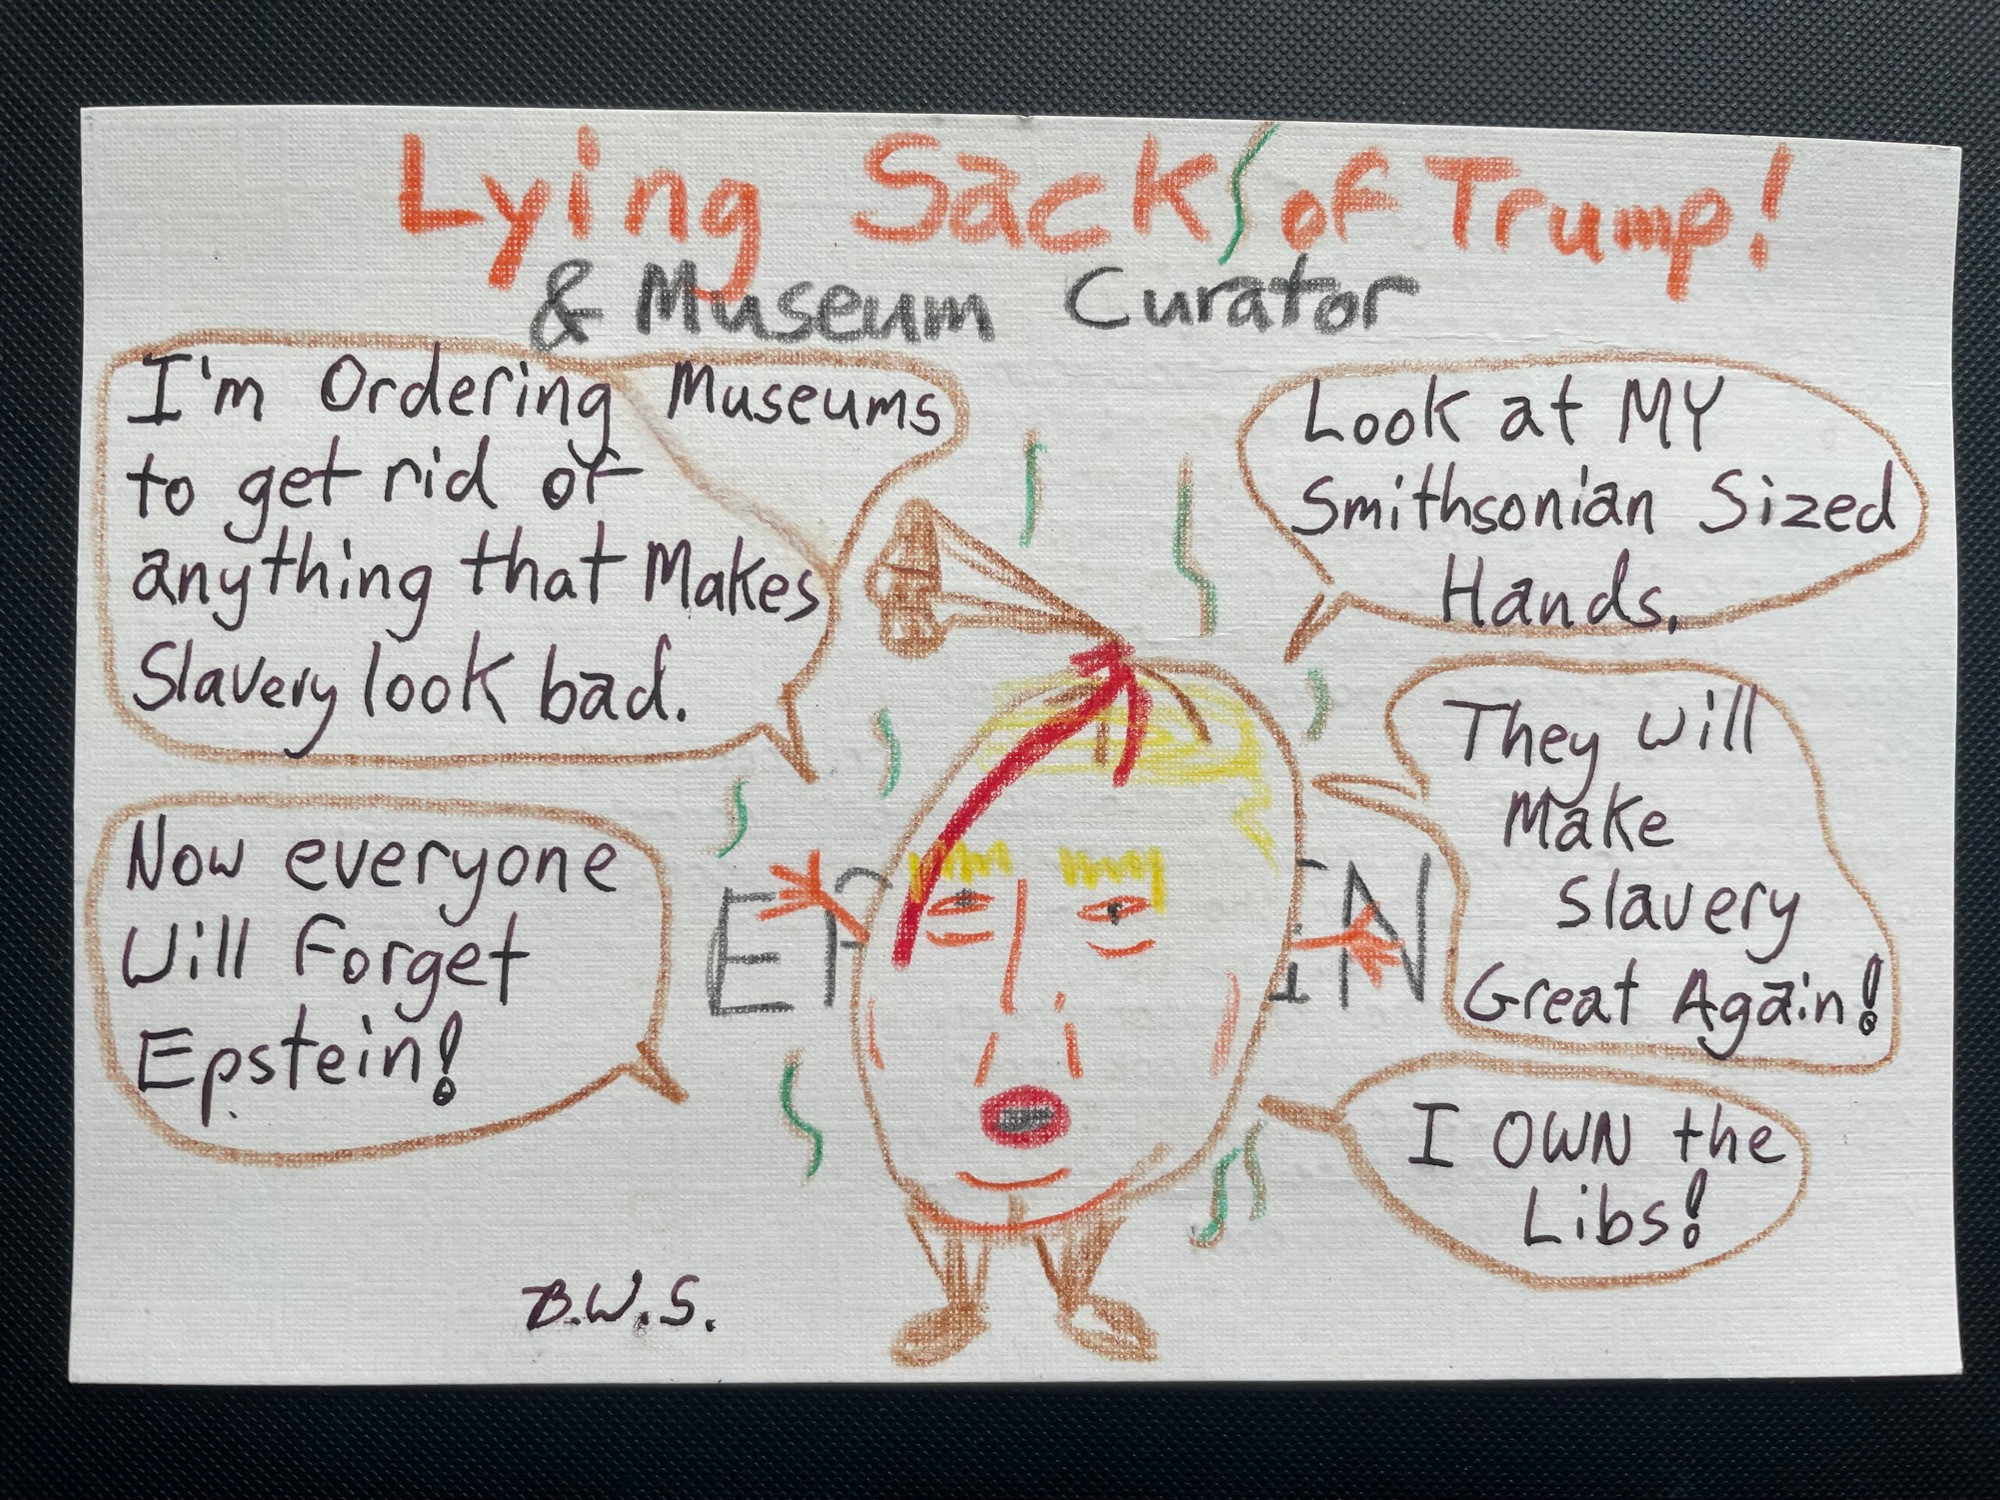 Lying Sack of Trump!
& Museum Curator
I'm Ordering Museums
to get rid of
anything that Makes
Slavery look bad.
Look at MY
Smithsonian Sized
Hands.
They will
Make
Slavery
Great Again!
Now everyone
Will Forget
Epstein!
EP IN
I OWN the
Libs!
B.W.S.